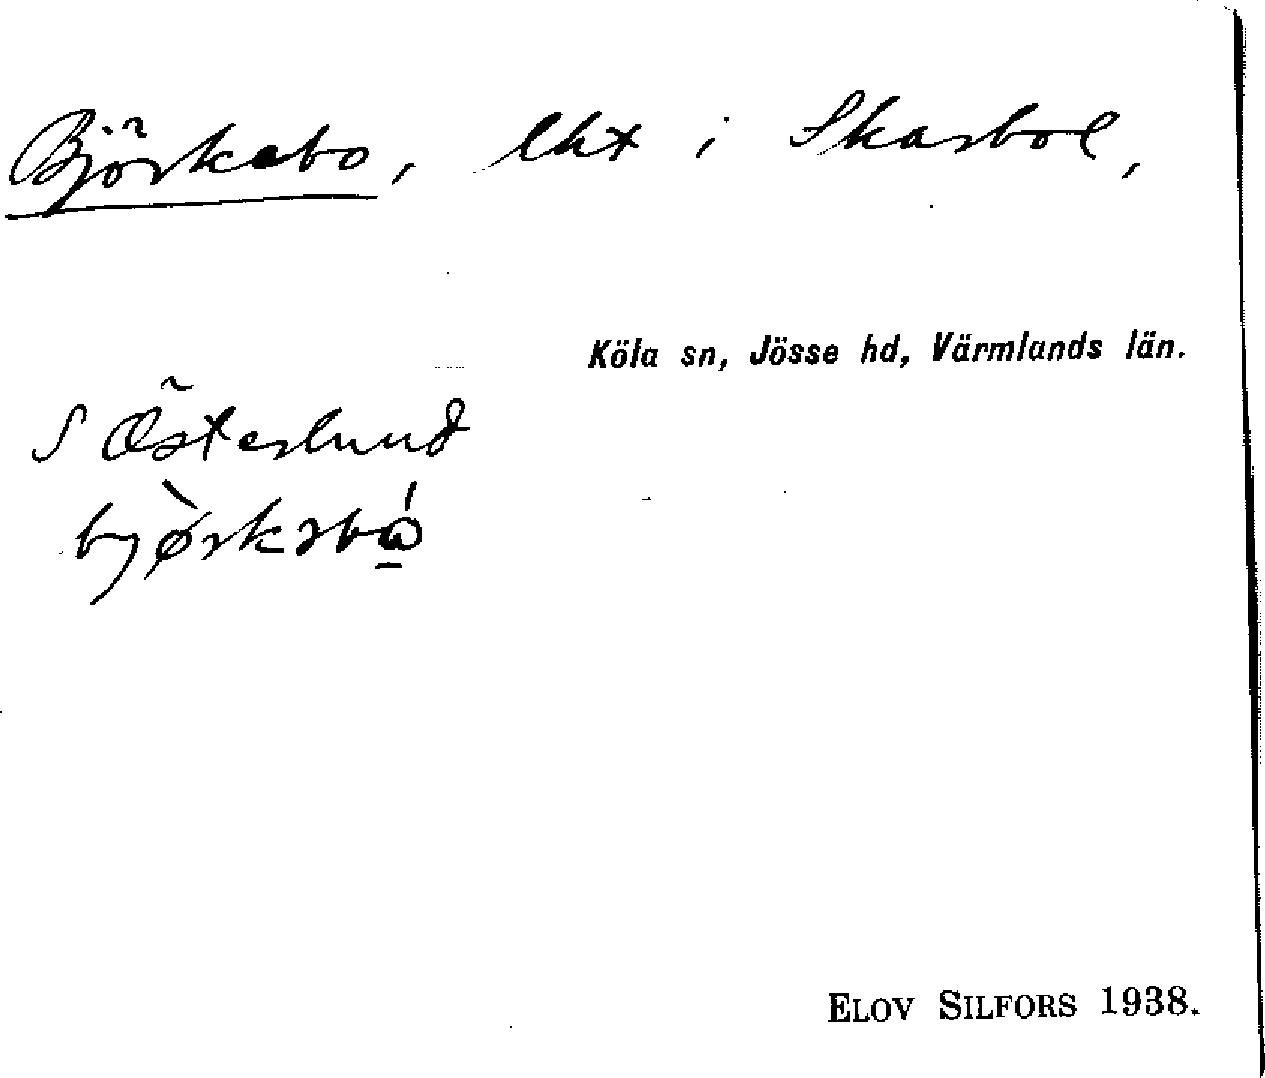 Björkebo, lht i Skarbol,
Köla sn, Jösse hd, Värmlands län.
S Österlund
ELOV SILFORS 1938.